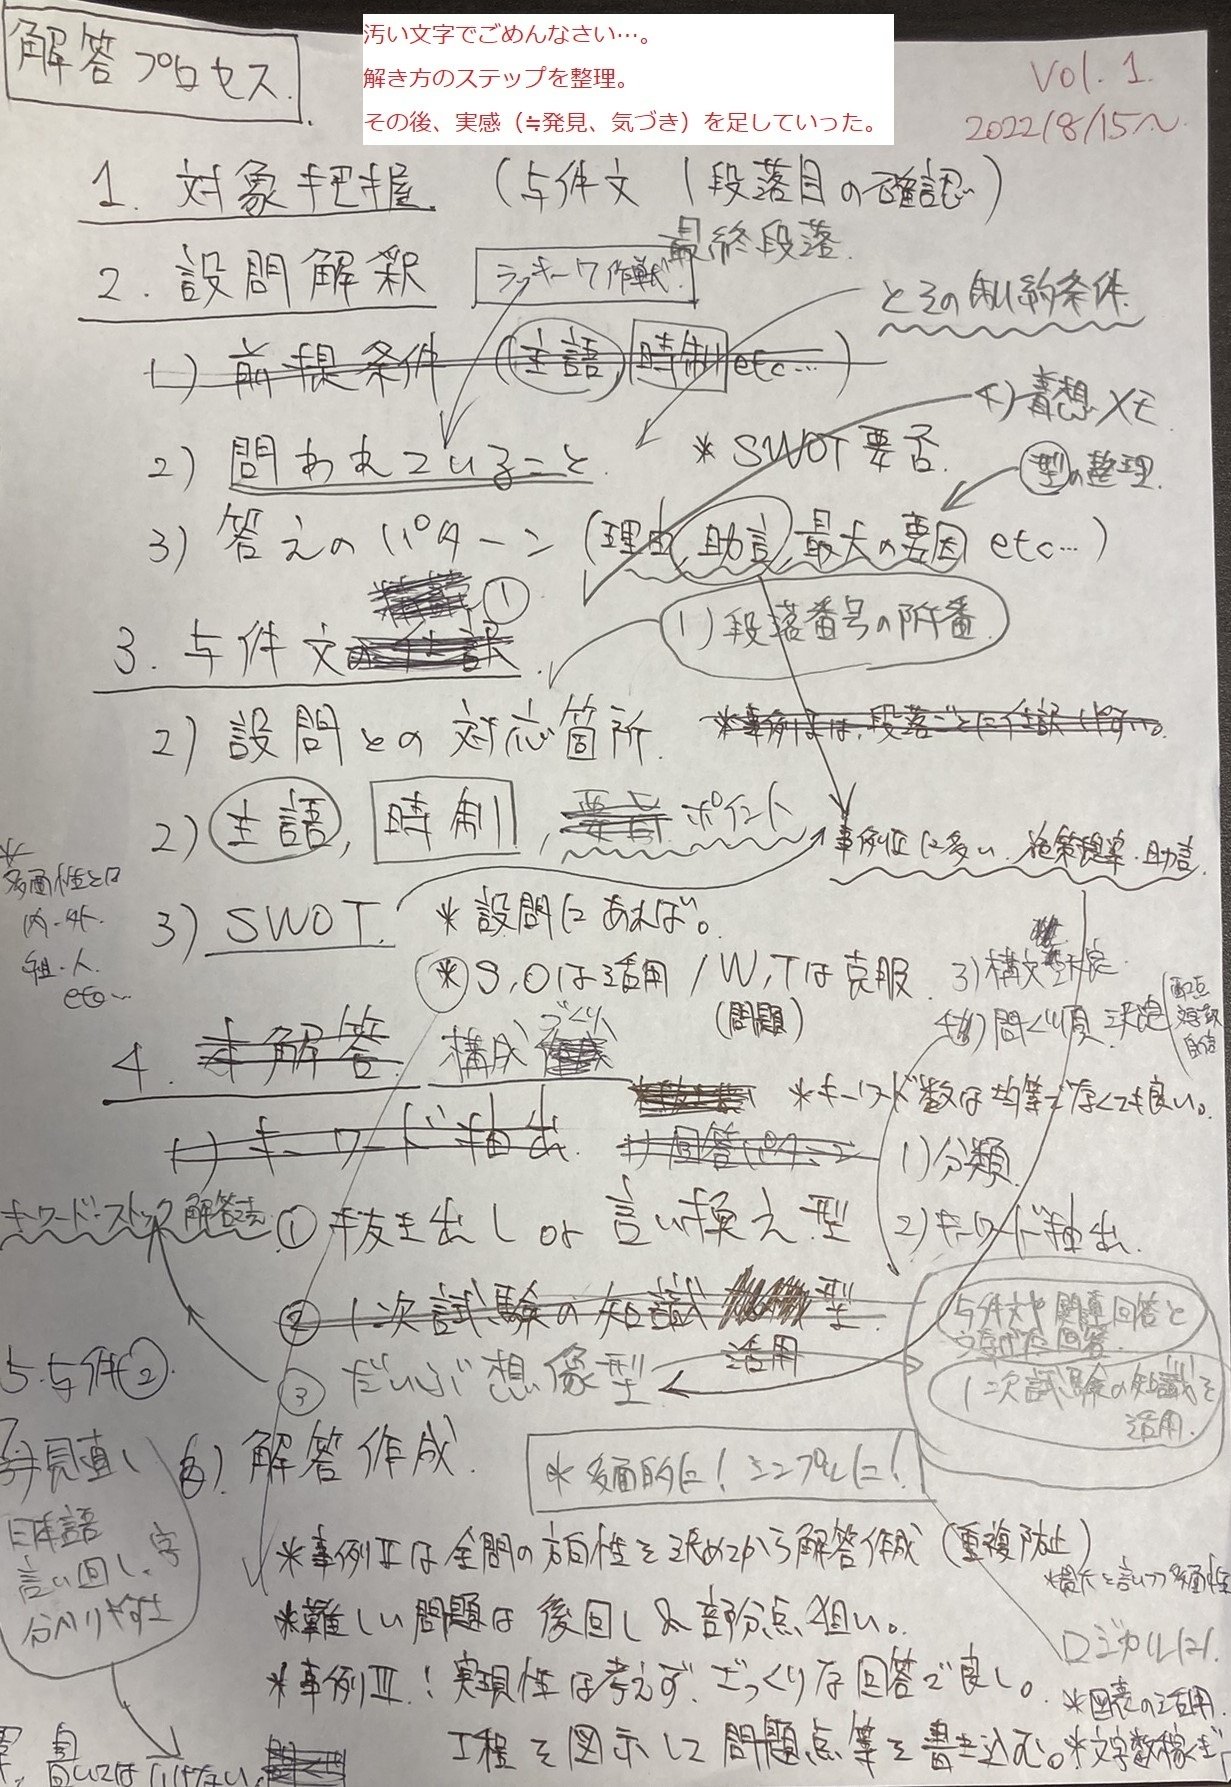 解答プロセス.
汚い文字でごめんなさい…。
解き方のステップを整理。
その後、実感（≒発見、気づき）を足していった。
Vol. 1.
2022/8/15〜
1. 対象把握. (与件文 1段落目の確認)
最終段落.
2. 設問解釈 ラッキー7作戦.
とその制約条件.
1) 前提条件 (主語, 時制 etc…)
4) 着想メモ
2) 問われていること. *SWOT要否.
型の整理.
3) 答えのパターン (理由, 助言, 最大の要因 etc…)
①
1) 段落番号の附番.
3. 与件文
2) 設問との対応箇所.
2) 主語, 時制, ポイント
事例Ⅲに多い. 施策提案・助言.
*多面性とは
内・外.
組・人.
etc…
3) SWOT. *設問にあれば。
*S,Oは活用 / W,Tは克服.
(問題)
3) 構文
4) 問ぐ順
4. 構成づくり
*キーワード数は均等でなくても良い。
1) キーワード抽出. 1) 分類.
キーワード・ストック
① 抜き出し or 言い換え型 2) キーワード抽出.
② 1次試験の知識 型.
活用
与件文や関連回答と
つなげた回答.
1次試験の知識を
活用.
③ だいぶ想像型
5. 与件②.
6). 解答作成. *多面的に！シンプルに！
見直し
日本語
言い回し、字
分かりやすさ
*事例Ⅱは全問の方向性を決めてから解答作成 (重複防止)
*難しい問題は後回し&部分点狙い。
ロジカルに！
*事例Ⅲ！実現性は考えず、ざっくりな回答で良し。
*図表の活用.
工程を図示して問題点等を書き込む。
*文字数稼ぎ